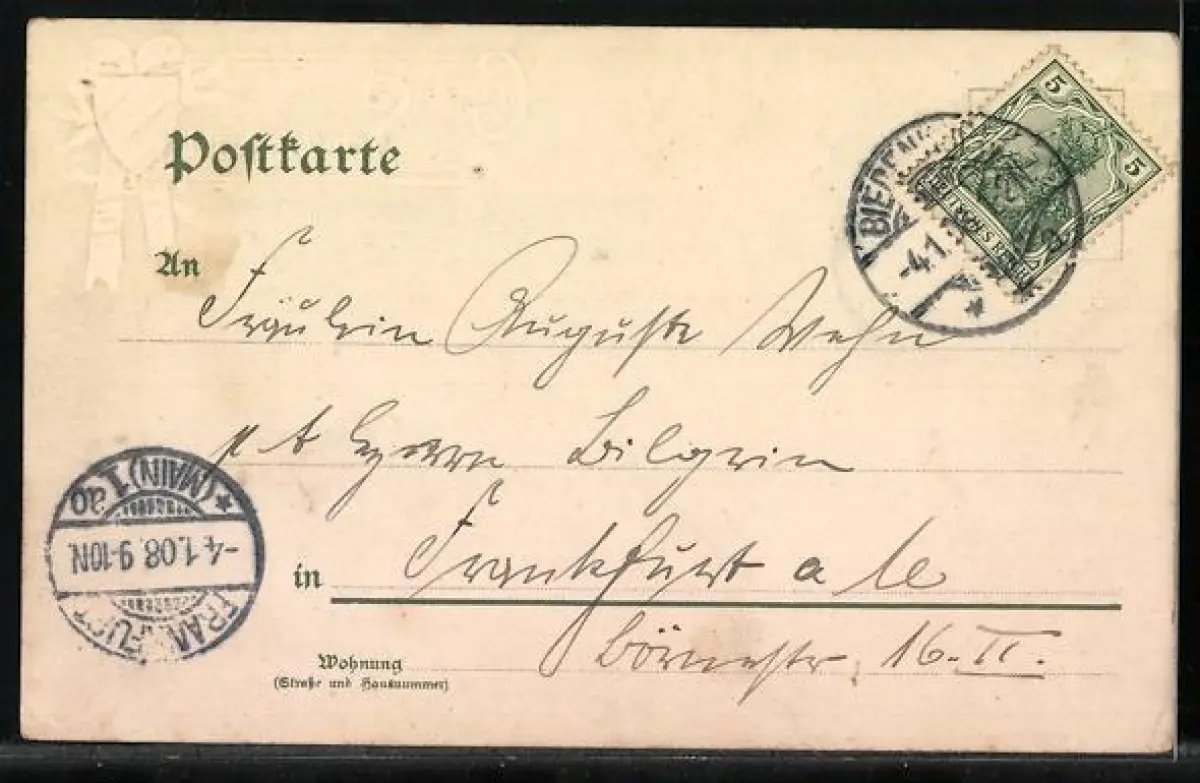 Postkarte
5
5
DEUTSCHES REICH
BIEDENK
-4.1.
An
Fräulein Auguste Wehn
p. A Herrn Bilgrim
in Frankfurt a
Wohnung
(Straße und Hausnummer)
Börnestr. 16. II.
FRANKFURT
-4.1.08. 9-10N.
*(MAIN) 1 ao